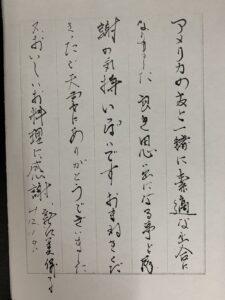 アメリカの友と一緒に素適な出合に
なりました 良き思い出になる事と感
謝の気持いっぱいです おまねきくだ
さったご夫妻にありがとうございました
又おいしいお料理に感謝